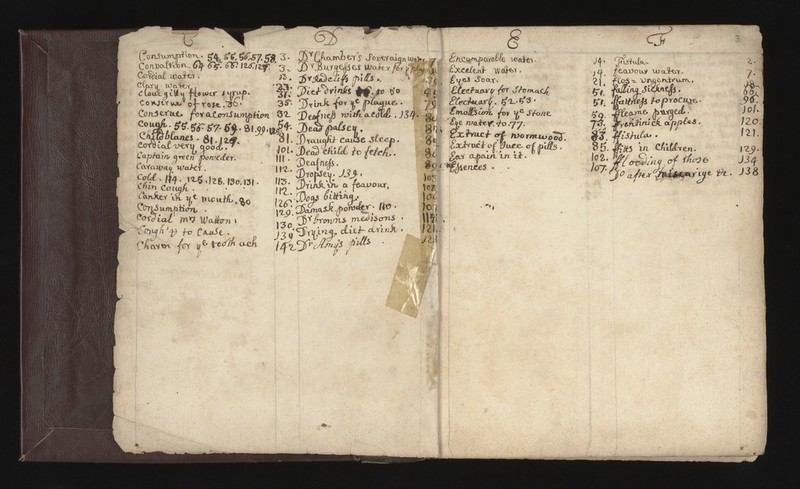 C
Consumption. 54. 55, 56, 57. 58. 3.
Convultion. 64 65. 66. 125. 127. 3.
Cordial water. 13.
Clary water
Clove gilly flower syrup. 31.
Conserue of rose. 36. 35.
Conserue for a consumption 32
Cough. 55. 56. 57. 54.
Childblanes. 81. 127. 81.
Cordial very good. 101.
Captain green powder. 111.
Caraway water. 112.
Cold. 114. 125. 128. 130. 131. 113.
Chin cough.
Canker in ye mouth. 80 126.
Consumption. 129.
Cordial mrs Watton 130
Cough to cause. 139
Charm for ye tooth ach 142
D
Dr Chamber's Soveraign water
Dr Burgesses water for ye
Dr Radclifs pills.
Diet drinks 50
Drink for ye plague.
Deafness with a cold. 134.
Dead palsey.
Draught cause sleep.
Dead child to fetch.
Deafness.
Dropsey. 139.
Drink in a feavour.
Dogs bitting.
Damask powder. 110.
Dr browns medisons.
Drying diet drink. 121
Dr Amys pills
E
Encomparable water. 14.
Excelent water. 14.
Eyes Soar. 21.
Electuary for Stomach 51.
Electuary. 52. 53. 51.
Emultion for ye Stone 59.
Eye water. 70. 77. 73.
Extract of wormwood. 83.
Extract of Juce of pills. 85.
Ear a pain in it. 102.
Essences. 107.
F
Fistula. 2.
feavour water. 7.
flos unguentrum. 18.
falling Sickness. 66.
Fairness to procure. 96.
Fleame purged. 101.
apples. 120.
Fistula. 121.
Fitts in Children. 129.
Flooding of those 134
Do after miscarige &c. 138